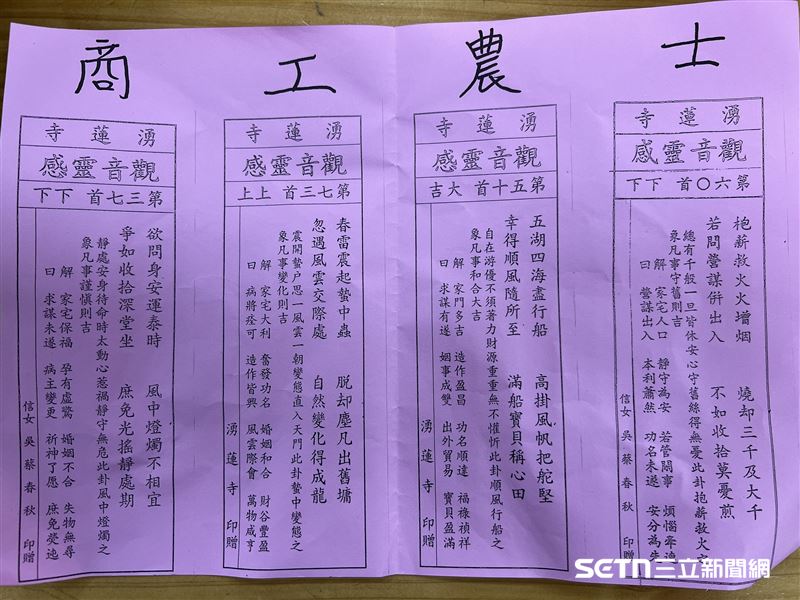 士 農 工 商
湧蓮寺
觀音靈感
第六〇首 下下
抱薪救火火增烟 燒却三千及大千
若問營謀併出入 不如收拾莫憂煎
總有千般一旦皆休安心守舊絲得無憂此卦抱薪救火之
象凡事守舊則吉
解 家宅人口 靜守為安 若管閒事 煩惱牽連
曰 營謀出入 本利蕭然 功名未遂 安分為先
信女 吳蔡春秋 印贈
湧蓮寺
觀音靈感
第五十首 大吉
五湖四海盡行船 高掛風帆把舵堅
幸得順風隨所至 滿船寶貝稱心田
自在游優不須著力財源重重無不慛忻此卦順風行船之
象凡事和合大吉
解 家門多吉 造作盈昌 功名順達 福祿禎祥
曰 求謀有遂 姻事成雙 出外貿易 寶貝盈滿
湧蓮寺 印贈
湧蓮寺
觀音靈感
第七三首 上上
春雷震起蟄中蟲 脱却塵凡出舊墉
忽遇風雲交際處 自然變化得成龍
震開蟄户思一風雲一朝變態直入天門此卦蟄中變態之
象凡事變化則吉
解 家宅大利 奮發功名 婚姻和合 財谷豐盈
曰 病將痊可 造作皆興 風雲際會 萬物咸亨
湧蓮寺 印贈
湧蓮寺
觀音靈感
第三七首 下下
欲問身安運泰時 風中燈燭不相宜
爭如收拾深堂坐 庶免光搖靜處期
靜處安身待命時太動心惹禍靜守無危此卦風中燈燭之
象凡事謹慎則吉
解 家宅保福 孕有虛驚 婚姻不合 失物無尋
曰 求謀未遂 病主變更 祈神了愿 庶免熒迍
信女 吳蔡春秋 印贈
SETN三立新聞網